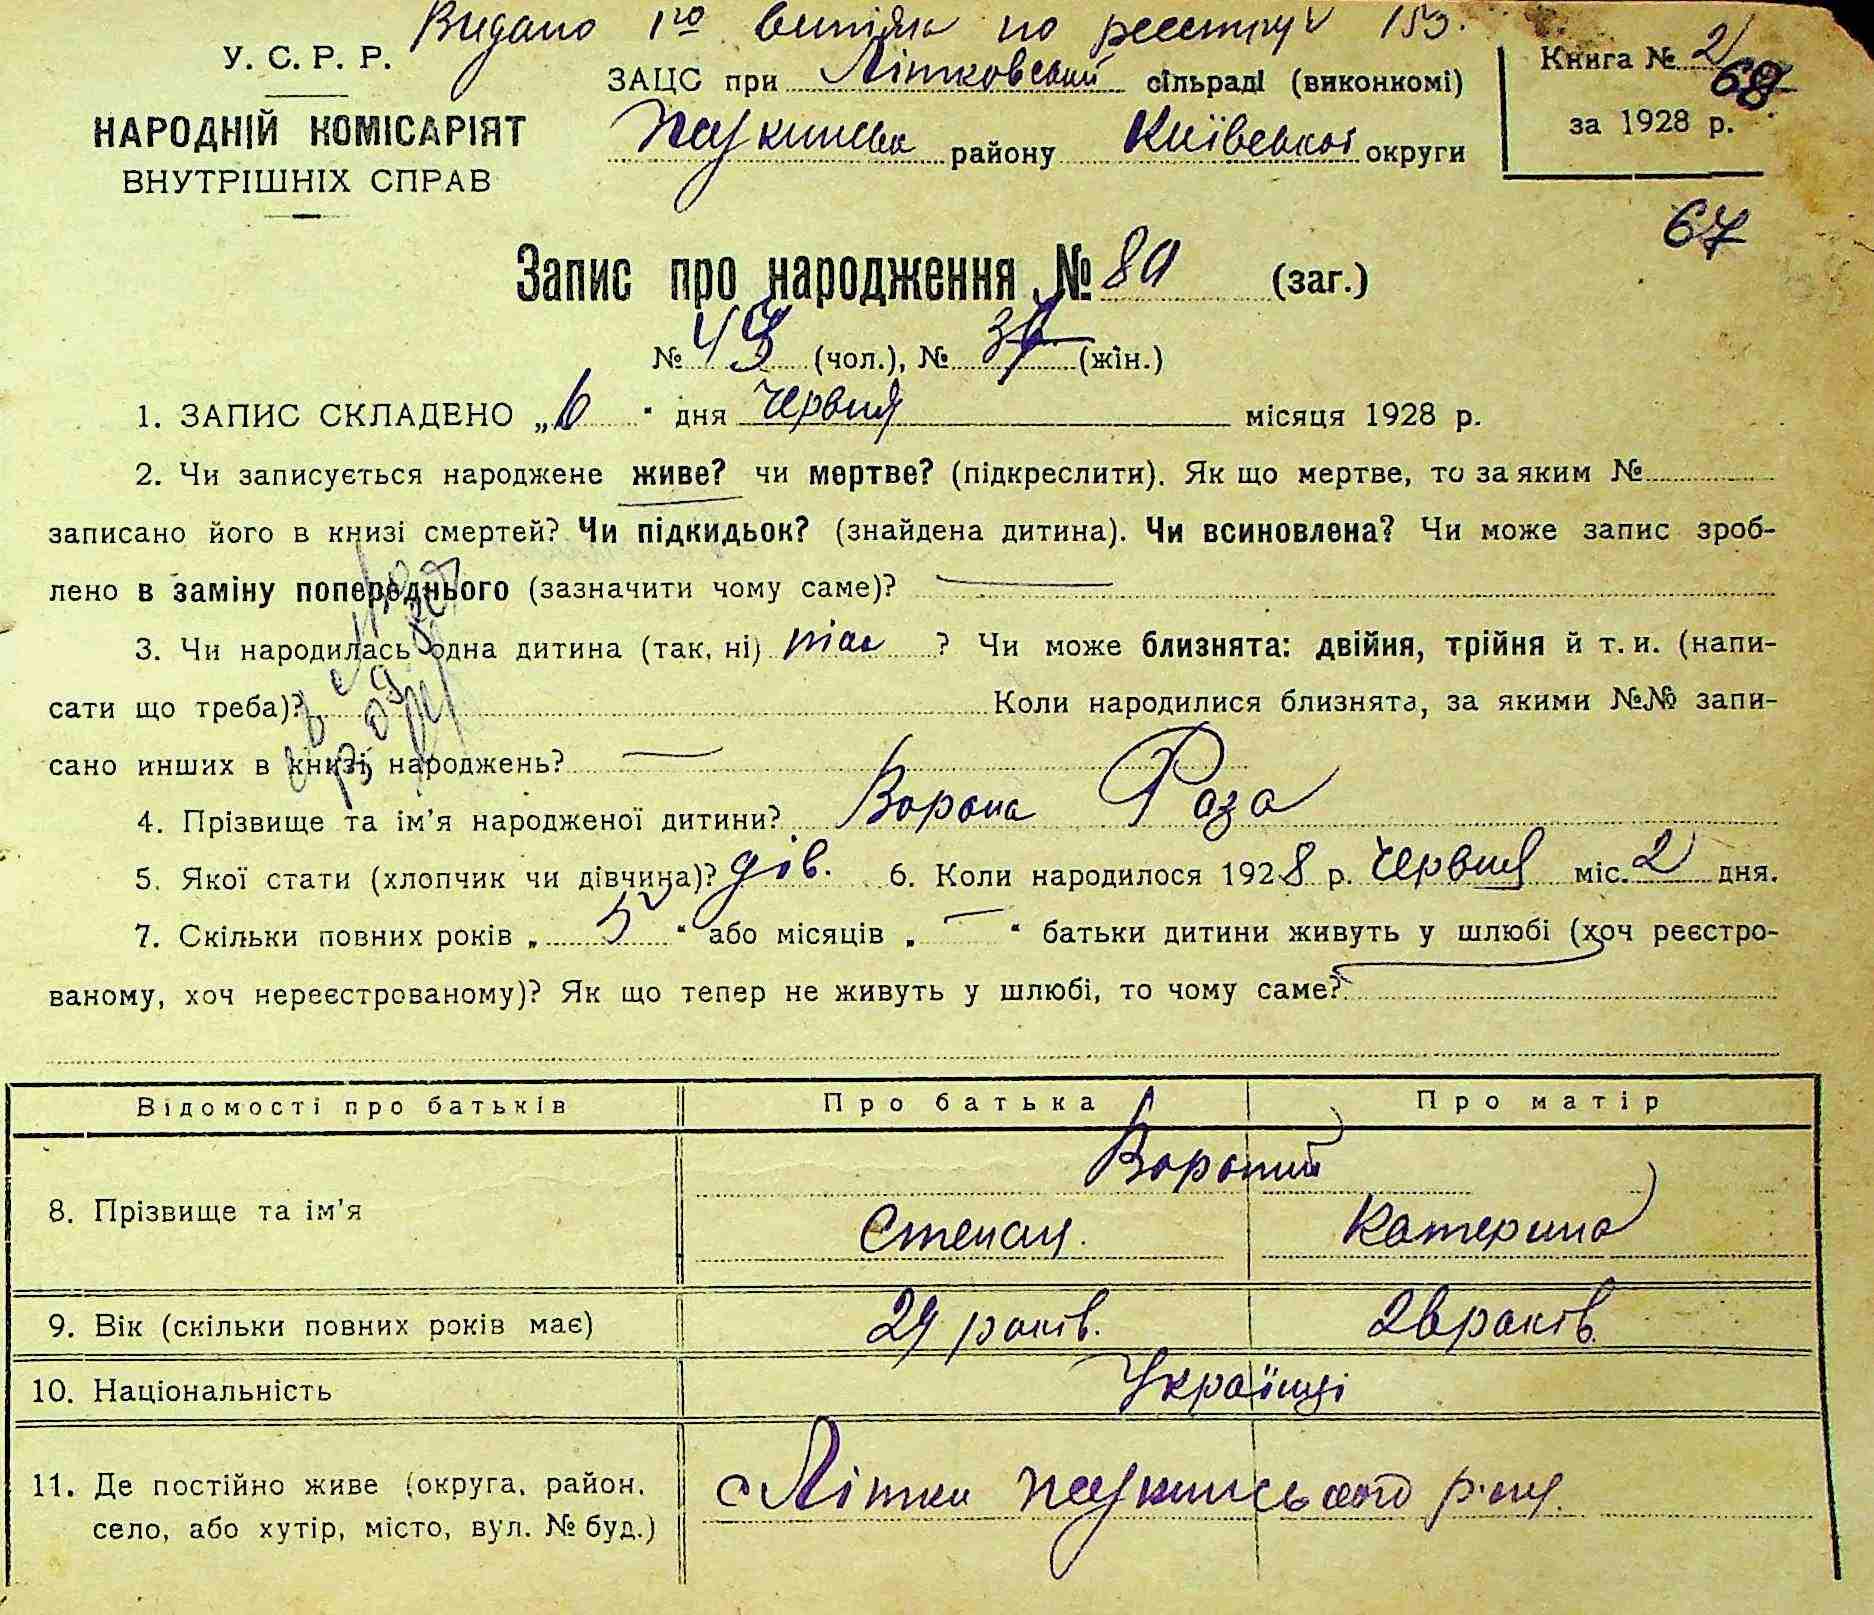 Видано 1го витяг по реєстру 153.
У. С. Р. Р.
НАРОДНІЙ КОМІСАРІЯТ
ВНУТРІШНІХ СПРАВ
ЗАЦС при Літковській сільраді (виконкомі)
району Київської округи
Книга № 2
68
за 1928 р.
67
Запис про народження № 80 (заг.)
№ 43 (чол.), № 37 (жін.)
1. ЗАПИС СКЛАДЕНО „6" дня червня місяця 1928 р.
2. Чи записується народжене живе? чи мертве? (підкреслити). Як що мертве, то за яким №
записано його в книзі смертей? Чи підкидьок? (знайдена дитина). Чи всиновлена? Чи може запис зроб-
лено в заміну попереднього (зазначити чому саме)? —
3. Чи народилась одна дитина (так, ні) так ? Чи може близнята: двійня, трійня й т. и. (напи-
сати що треба)? Коли народилися близнята, за якими №№ запи-
сано инших в книзі народжень? —
4. Прізвище та ім'я народженої дитини? Ворона Роза
5. Якої стати (хлопчик чи дівчина)? дів. 6. Коли народилося 1928 р. червня міс. 2 дня.
7. Скільки повних років „ 5 " або місяців „ — " батьки дитини живуть у шлюбі (хоч реєстро-
ваному, хоч нереєстрованому)? Як що тепер не живуть у шлюбі, то чому саме? —
Відомості про батьків Про батька Про матір
8. Прізвище та ім'я
Степан Катерина
9. Вік (скільки повних років має) 29 років. 26 років
10. Національність Українці
11. Де постійно живе (округа, район,
село, або хутір, місто, вул. № буд.)
с Літки р-ну.